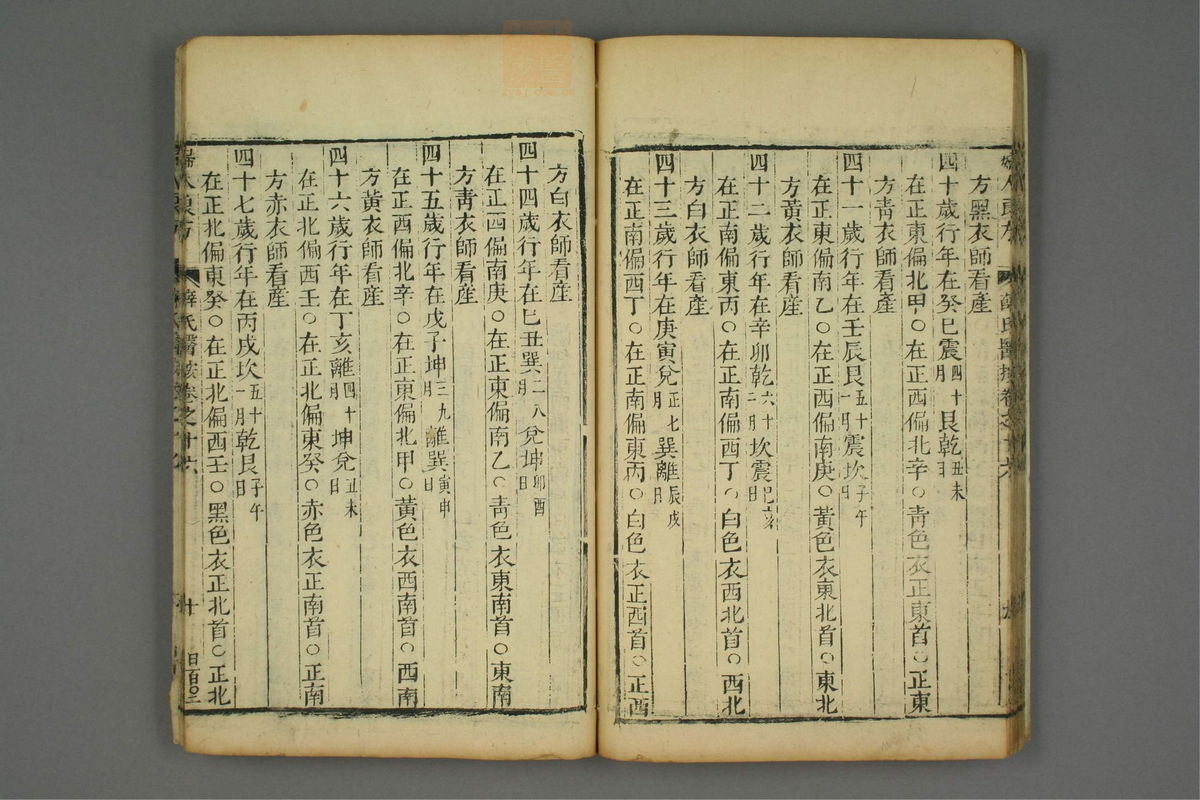 方黑衣師看產
四十歲行年在癸巳震四十月艮乾丑未日
在正東偏北甲○在正西偏北辛○青色衣正東首○正東
方青衣師看產
四十一歲行年在壬辰艮五十一月震坎子午日
在正東偏南乙○在正西偏南庚○黃色衣東北首○東北
方黃衣師看產
四十二歲行年在辛卯乾六十二月坎震巳亥日
在正南偏東丙○在正南偏西丁○白色衣西北首○西北
方白衣師看產
四十三歲行年在庚寅兌正七月巽離辰戌日
在正南偏西丁○在正南偏東丙○白色衣正西首○正西
方白衣師看產
四十四歲行年在己丑巽二八月兌坤卯酉日
在正西偏南庚○在正東偏南乙○青色衣東南首○東南
方青衣師看產
四十五歲行年在戊子坤三九月離巽寅申日
在正西偏北辛○在正東偏北甲○黃色衣西南首○西南
方黃衣師看產
四十六歲行年在丁亥離四十月坤兌丑未日
在正北偏西壬○在正北偏東癸○赤色衣正南首○正南
方赤衣師看產
四十七歲行年在丙戌坎五十一月乾艮子午日
在正北偏東癸○在正北偏西壬○黑色衣正北首○正北
婦人良方 薛氏醫按卷之十六 十